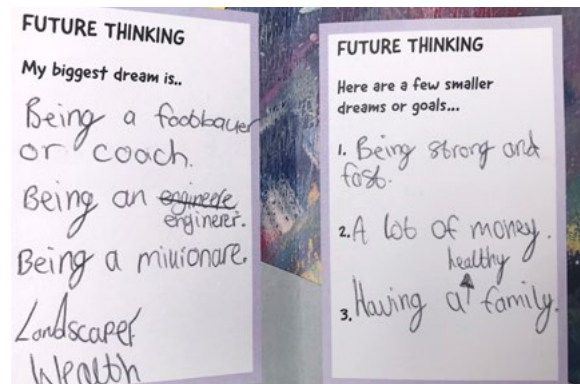 FUTURE THINKING
My biggest dream is..
Being a footballer
or coach.
Being an engineere
enginerer.
Being a millionare.
Landscaper
Wealth
FUTURE THINKING
Here are a few smaller
dreams or goals...
1. Being strong and
fast.
2. A lot of money.
healthy
3. Having a family.